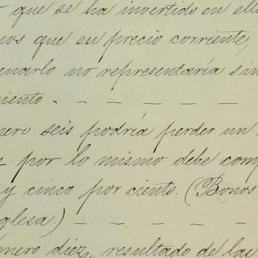 que se ha invertido en ell
nos que su precio corriente,
enarlo no representaría sin
iento. - - - - -
nero seis podría perder un
por lo mismo debe comp
y cinco por ciento. (Bonos
glesa) - - - - -
úmero diez, resultado de las